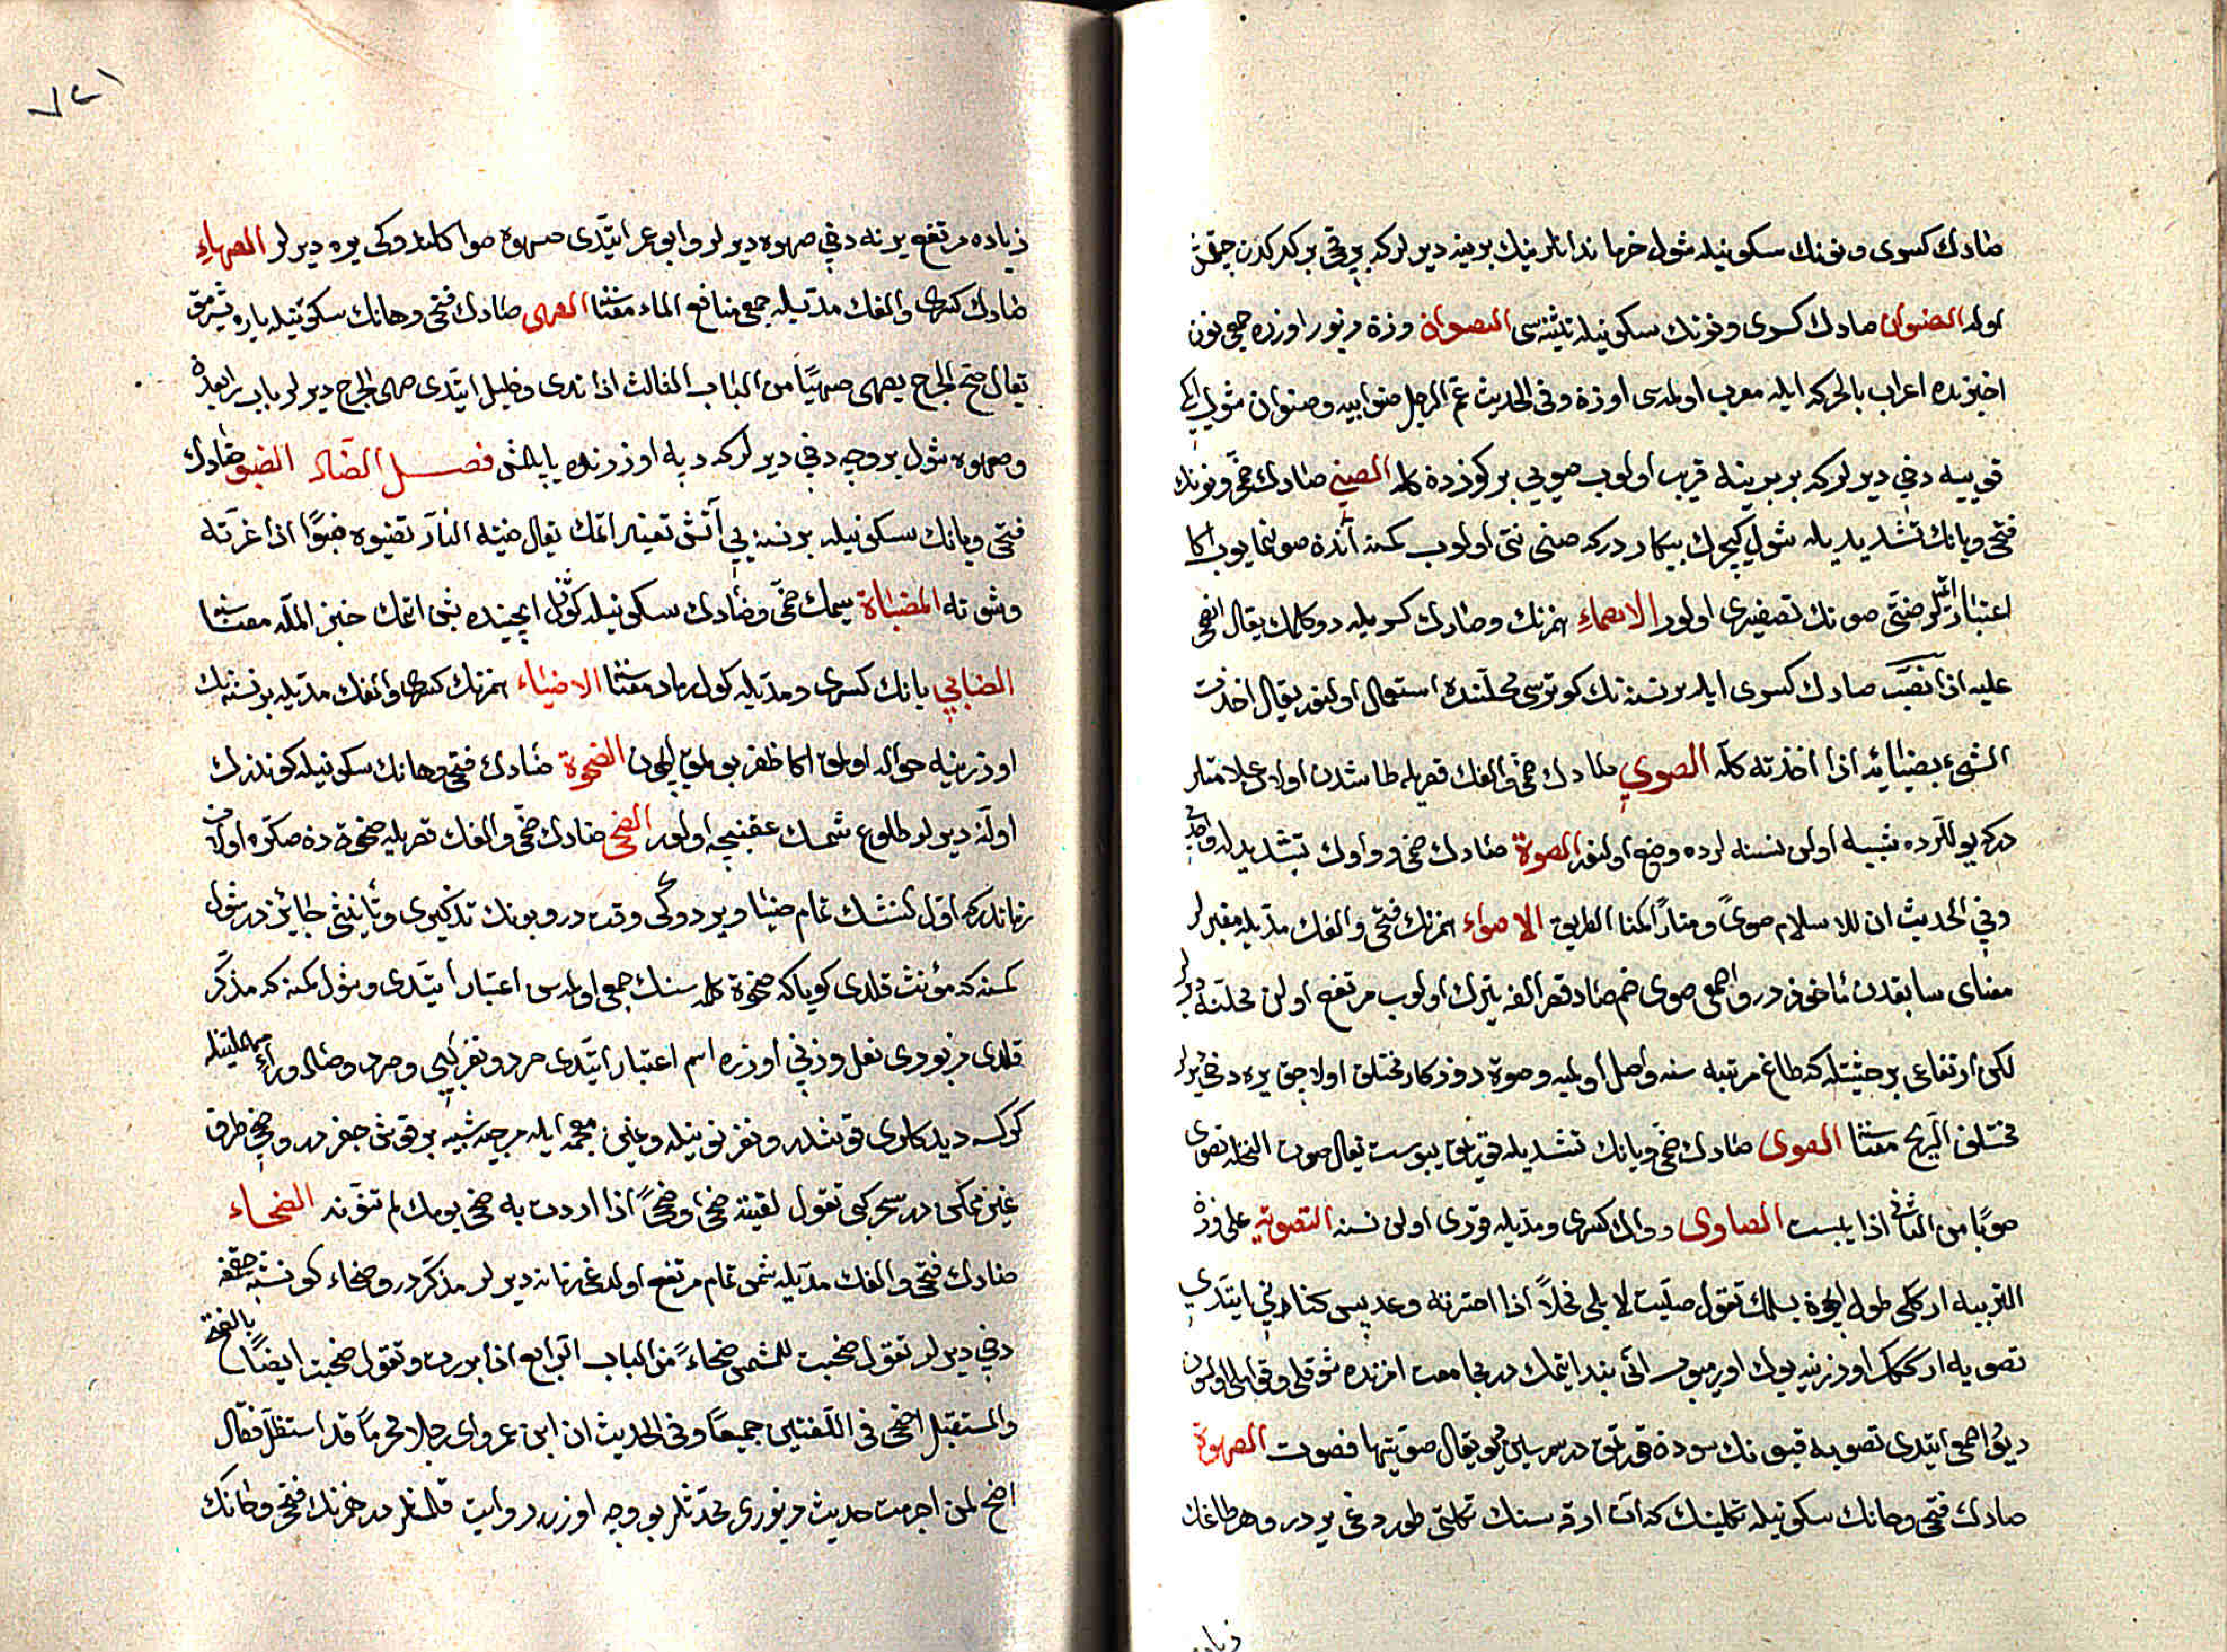 صادك كسرى ونونك سكونيله شول خرما ندانلرينك برينه ديرلر كه برقچى بر كدن چقمش
اوله الصنوان صادك كسرى ونونك سكونيله تثنيه سى الصنوان وزن مزبور اوزره جمعى نون
اخرنده اعراب بالحركه ايله معرب اولمسى اوزره وفى الحديث عم الرجل صنو ابيه وصنوان شول ايكى
قيويه دخى ديرلر كه بر برينه قريب اولوب صويى بر كوزدن كله الصنى صادك ضمى ونونك
فتحى ويانك تشديديله شول كيچرك بيكار در كه صنى اولوب كمسنه آندن صو لنمايوب اكا
اعتبار اتمزلر صنو تصغيرى اولور الاصماء همزنك وصادك كسريله دوكلمك يقال انصمى
عليه اذا انصب صادك كسرى ايله بر نسنه نك كوتوسى محلنده استعمال اولنور يقال اخذت
الشىء بصنايته اذا اخذته كله الصوى صادك ضمى والفك قصريله طاشدن اولان علامتلر
دركه يوللرده نسنه لرده وضع اولنور الصوة صادك ضمى وواوك تشديديله واحدى
وفى الحديث ان للاسلام صوى ومنارا كمنار الطريق الاصواء همزنك فتحى والفك مديله مقبرلر
معناى سابقدن مأخوذ در واصمعى صوى ضم صاد وقصر الفه يرلر اولوب مرتفع اولان محلته ديرلر
لكن ارتفاعى بر حيثيتله كه طاغ مرتبه سنه واصل اولميه وصوة روزكار مختلف اولاجق يره دخى ديرلر
مختلف الريح معناسنا الصوى صادك ضمى ويانك تشديديله قوريمق يبوست يقال صوت النخلة تصوى
صويا من الثانى اذا يبست الصاوى وواوك كسرى ومديله قورى اولان نسنه التصوية على وزن
التربية اركك طول ايچون بسلمك تقول صويت لابلى فحلا اذا اخترته وعدبس كنانى ايتدى
تصويه اركك اوزرينه يوك اورميوب انى بند ايتمك در
ديو اصمعى ايتدى تصويه قيونك سودن قورتمق در سمرسون ايچون يقال صويتها فصوت الصهوة
صادك فتحى وهانك سكونيله تكلتينك كه ات ارقه سنك تكلتى طوردغى يردر وهر طاغك
زياده
٧٢١
زياده مرتفع يرنه دخى صهوه ديرلر وابو عمر ايتدى صهوه صو اكلندوكى يره ديرلر الصهاء
صادك كسرى والفك مديله جمعى منافع الماء معناسنا الصهى صادك فتحى وهانك سكونيله ياره يشرمق
يقال صهى الجرح يصهى صهيا من الباب الثالث اذا ندى وخليل ايتدى صهى الجرح ديرلر باب رابعدن
وصهوه شول بروجه دخى ديرلر كه دپه اوزرنده ياپلمش فصل الضاد الضبو ضادك
فتحى وبانك سكونيله بر نسنه يى آتش تغيير اتمك يقال ضبته النار تضبوه ضبوا اذا غيرته
وشوته المضباة ميمك ضمى وضادك سكونيله كوكل ايچنده بشن اتمك خبز الملة معناسنا
الضابى بانك كسرى ومديله كول رماد معناسنا الاضباء همزنك كسرى والفك مديله بر نسنه نك
اوزرينه حواله اولمق اكا ظفر بولمق ايچون الضحوة ضادك فتحى وهانك سكونيله كوندزك
اولنه ديرلر طلوع شمسك عقبنجه اولور الضحى ضادك ضمى والفك قصريله ضحوة دن صكره اولان
زماندركه اول كنشك تمام ضيا ويردوكى وقت در وبونك تذكيرى وتأنيثى جائز در شول
كمسنه كه مؤنث قلدى كويا كه ضحوة كلمه سنك جمعى اولمسن اعتبار ايتدى وشول كمسنه كه مذكر
قلدى مزبورى فعل وزنى اوزره اسم اعتبار ايتدى صرد ونغر كبى وصرد وصاد وراء مهملتيله
كوكسه ديدكلرى قوشدر ونغر نونيله وغين معجمه ايله سرچه شبيه بر قوش جغز در وضحى ظرف
غير متمكن در سحر كبى تقول لقيته ضحى وضحى اذا اردت به ضحى يومك لم تنونه الضحاء
ضادك فتحى والفك مديله شمس تمام مرتفع اولدغى زمانه ديرلر مذكر در وضحاء كونشه چقمغه
دخى ديرلر تقول ضحيت للشمس ضحاء من الباب الرابع اذا برزت وتقول ضحيت ايضا بالفتح
والمستقبل اضحى فى اللغتين جميعا وفى الحديث ان ابن عمر رأى رجلا محرما قد استظل فقال
اضح لمن احرمت حديث مزبورى محدثلر بو وجه اوزره روايت قلمشلر در همزنك فتحى وحانك